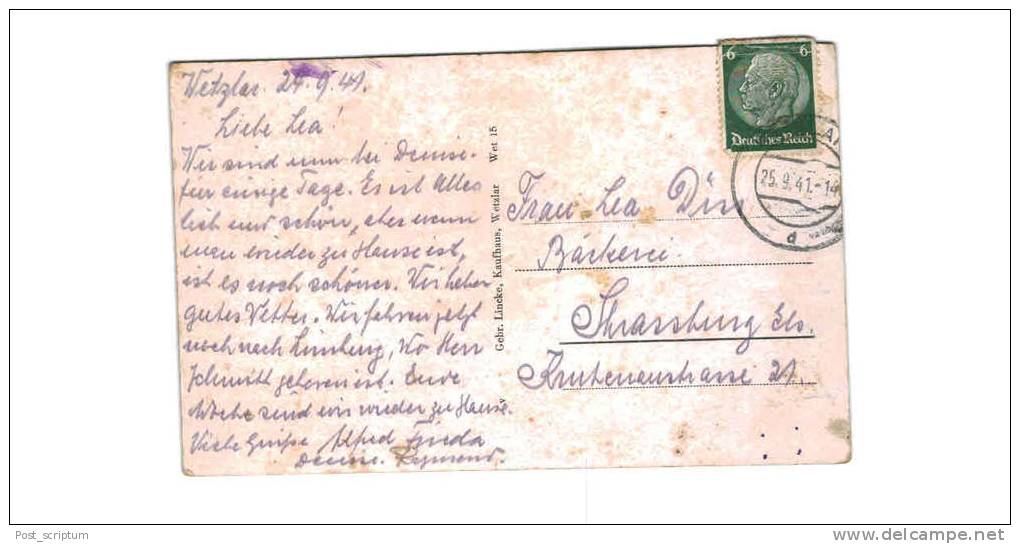 Wetzlar 24.9.41.
Liebe Lea!
Wir sind nun bei Denise.
für einige Tage. Es ist Alles
lieb und schön, aber wenn
man wieder zu Hause ist,
ist es noch schöner. Wir haben
gutes Vetter. Wir fahren jetzt
noch nach Limburg, Wo Herr
Schmitt geboren ist. Ende
Woche sind wir wieder zu Hause.
Viele Grüße Alfred Frieda
Denise. Raymond.
Gebr. Lincke, Kaufhaus, Wetzlar Wet 15
6 6
Deutsches Reich
25.9.41.-14
d
Frau Lea
Bäckerei
Strassburg Els.
Krutenaustrasse 21.
Post_scriptum
delcampe.net